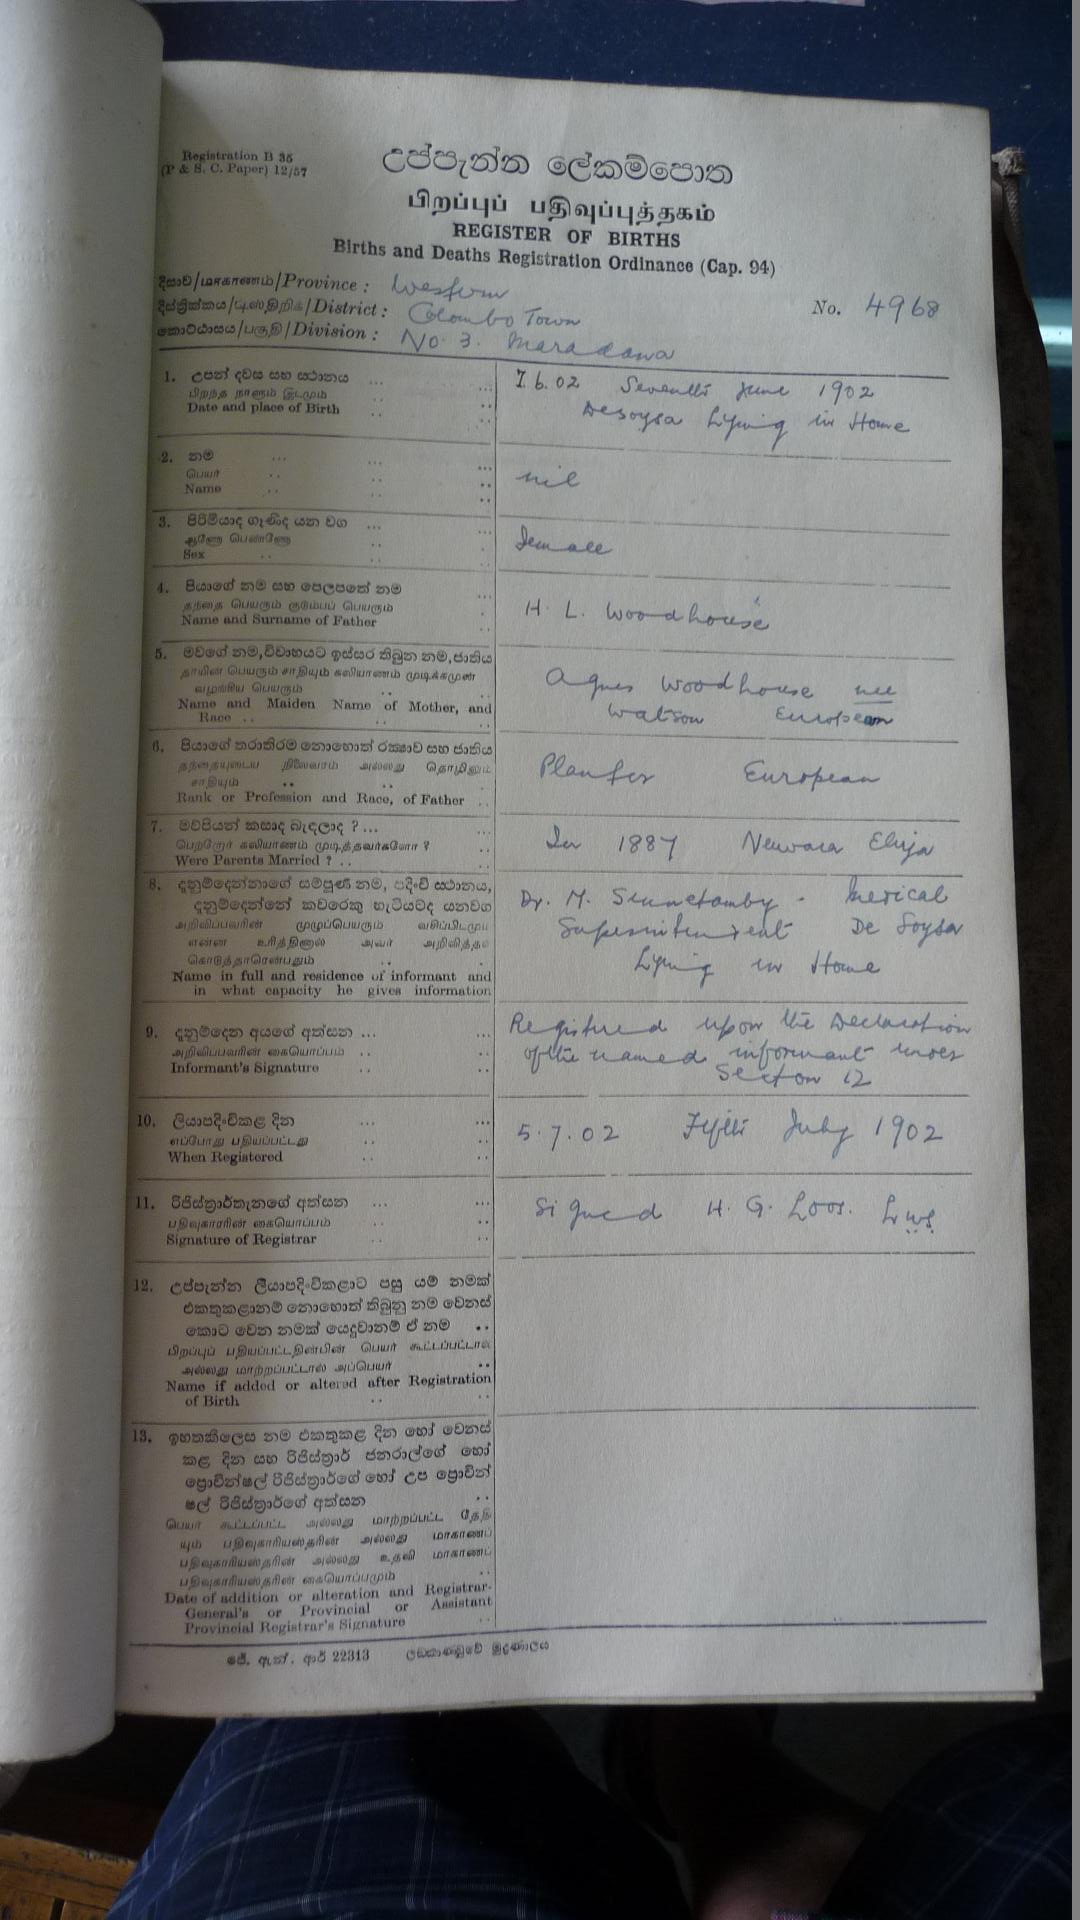 Registration B 35
(P & S. C. Paper) 12/57
උප්පැන්න ලේකම්පොත
பிறப்புப் பதிவுப்புத்தகம்
REGISTER OF BIRTHS
Births and Deaths Registration Ordinance (Cap. 94)
දිසාව/மாகாணம்/Province : Western
දිස්ත්‍රික්කය/டிஸ்திறிக்/District : Colombo Town
No. 4968
කොට්ඨාසය/பகுதி/Division : No. 3. Maradana
1. උපන් දවස සහ ස්ථානය ... ...
பிறந்த நாளும் இடமும் .. ..
Date and place of Birth .. ..
7.6.02 Seventh June 1902
Desoysa Lying in Home
2. නම ... ... ...
பெயர் .. .. ..
Name .. .. ..
nil
3. පිරිමියාද ගැණිද යන වග ... ...
ஆணோ பெண்ணோ .. ..
Sex .. .. .
female
4. පියාගේ නම සහ පෙලපතේ නම ...
தந்தை பெயரும் குடும்பப் பெயரும்
Name and Surname of Father ..
H. L. Woodhouse
5. මවගේ නම, විවාහයට ඉස්සර තිබුන නම, ජාතිය
தாயின் பெயரும் சாதியும் கலியாணம் முடிக்கமுன்
வழங்கிய பெயரும் .. ..
Name and Maiden Name of Mother, and
Race .. .. ..
Agnes Woodhouse nee
Watson European
6. පියාගේ තරාතිරම නොහොත් රක්ෂාව සහ ජාතිය
தந்தையுடைய நிலைவரம் அல்லது தொழிலும்
சாதியும் .. .. ..
Rank or Profession and Race, of Father ..
Planter European
7. මව්පියන් කසාද බැඳලාද ? ... ...
பெற்றோர் கலியாணம் முடித்தவர்களோ ? ..
Were Parents Married ? .. ..
In 1887 Nuwara Eliya
8. දැනුම්දෙන්නාගේ සම්පූර්ණ නම, පදිංචි ස්ථානය,
දැනුම්දෙන්නේ කවරෙකු හැටියටද යනවග
அறிவிப்பவரின் முழுப்பெயரும் வசிப்பிடமும்
என்ன உரித்தினால் அவர் அறிவித்தல்
கொடுத்தாரென்பதும் .. .
Name in full and residence of informant and
in what capacity he gives information
Dr. M. Sinnetamby - Medical
Superintendent De Soysa
Lying in Home
9. දැනුම්දෙන අයගේ අත්සන ... ...
அறிவிப்பவரின் கையொப்பம் .. ..
Informant's Signature .. ..
Registered upon the Declaration
of the named informant under
Section 12
10. ලියාපදිංචිකළ දින ... ...
எப்போது பதியப்பட்டது .. ..
When Registered .. ..
5.7.02 Fifth July 1902
11. රිජිස්ත්‍රාර්තැනගේ අත්සන ... ...
பதிவுகாரரின் கையொப்பம் .. ..
Signature of Registrar .. ..
Signed H. G. Loos.
12. උප්පැන්න ලියාපදිංචිකළාට පසු යම් නමක්
එකතුකළානම් නොහොත් තිබුනු නම වෙනස්
කොට වෙන නමක් යෙදුවානම් ඒ නම ..
பிறப்புப் பதியப்பட்டதின்பின் பெயர் கூட்டப்பட்டால்
அல்லது மாற்றப்பட்டால் அப்பெயர் ..
Name if added or altered after Registration
of Birth .. ..
13. ඉහතකිලෙස නම එකතුකළ දින හෝ වෙනස්
කළ දින සහ රිජිස්ත්‍රාර් ජනරාල්ගේ හෝ
ප්‍රොවින්ෂල් රිජිස්ත්‍රාර්ගේ හෝ උප ප්‍රොවින්
ෂල් රිජිස්ත්‍රාර්ගේ අත්සන ..
பெயர் கூட்டப்பட்ட அல்லது மாற்றப்பட்ட தேதி
யும் பதிவுகாரியஸ்தரின் அல்லது மாகாணப்
பதிவுகாரியஸ்தரின் அல்லது உதவி மாகாணப்
பதிவுகாரியஸ்தரின் கையொப்பமும் ..
Date of addition or alteration and Registrar-
General's or Provincial or Assistant
Provincial Registrar's Signature ..
ජේ. ඇන්. ආර් 22313 ලඞකාණ්ඩුවේ මුද්‍රණාලය